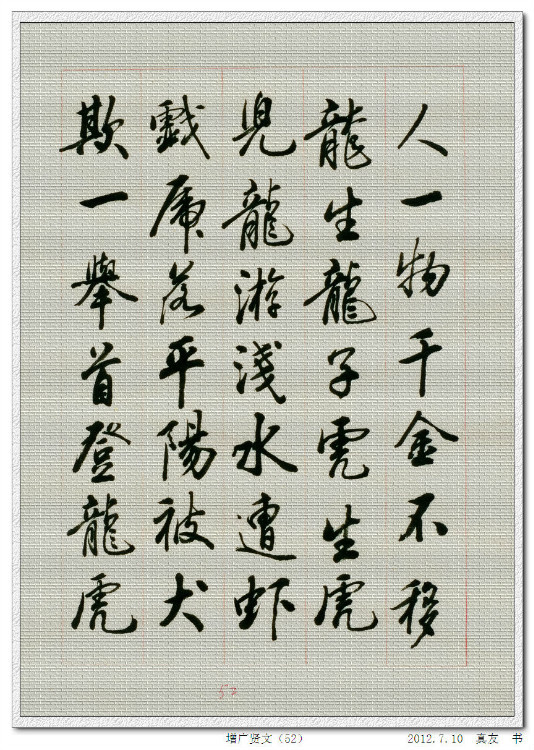 人一物千金不移
龍生龍子虎生虎
兒龍游淺水遭虾
戲虎落平陽被犬
欺一舉首登龍虎
52
增广贤文（52） 2012.7.10 真友 书